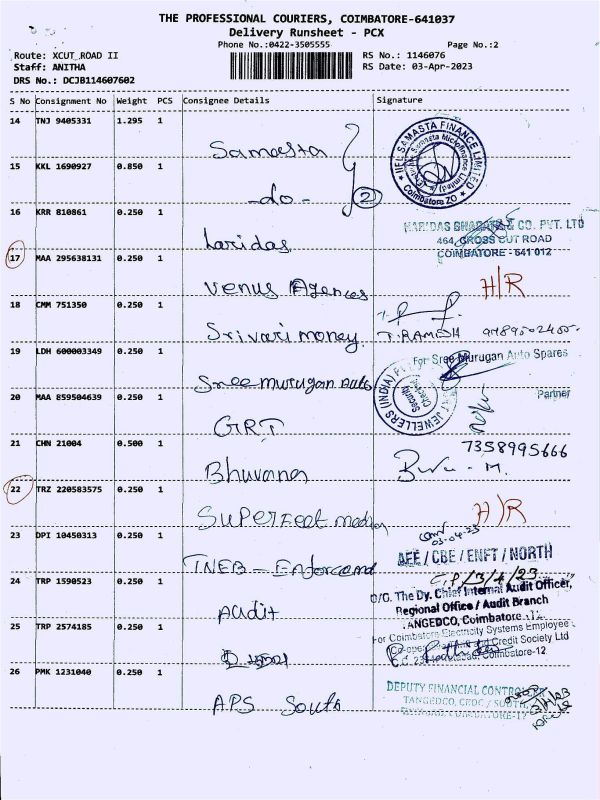 THE PROFESSIONAL COURIERS, COIMBATORE-641037
Delivery Runsheet - PCX
Phone No.:0422-3505555 Page No.:2
Route: XCUT ROAD II RS No.: 1146076
Staff: ANITHA RS Date: 03-Apr-2023
DRS No.: DCJB114607602
S No Consignment No Weight PCS Consignee Details Signature
14 TNJ 9405331 1.295 1
Samasta
IIFL SAMASTA FINANCE LIMITED
Coimbatore ZO
15 KKL 1690927 0.850 1
-do- 2
16 KRR 810861 0.250 1
Haridas
HARIDAS & CO. PVT. LTD
464, CROSS CUT ROAD
COIMBATORE - 641 012
17 MAA 295638131 0.250 1
Venus Agences
H/R
18 CMM 751350 0.250 1
Srivari money
T. RAMESH
19 LDH 600003349 0.250 1
Sree murugan Auto
For Sree Murugan Auto Spares
Partner
20 MAA 859504639 0.250 1
GRT
JEWELLERS (INDIA)
Security
Checked
21 CHN 21004 0.500 1
Bhuvana
7358995666
22 TRZ 220583575 0.250 1
Superfect
H/R
23 DPI 10450313 0.250 1
TNEB - Enforcemd
03-04-23
AEE / CBE / ENFT / NORTH
24 TRP 1590523 0.250 1
Audit
3/4/23
O/O. The Dy. Chief Internal Audit Officer,
Regional Office / Audit Branch
TANGEDCO, Coimbatore
25 TRP 2574185 0.250 1
For Coimbatore Electricity Systems Employee
Credit Society Ltd
Coimbatore-12
26 PMK 1231040 0.250 1
APS South
DEPUTY FINANCIAL CONTROLLER
TANGEDCO, CEDC / SOUTH,